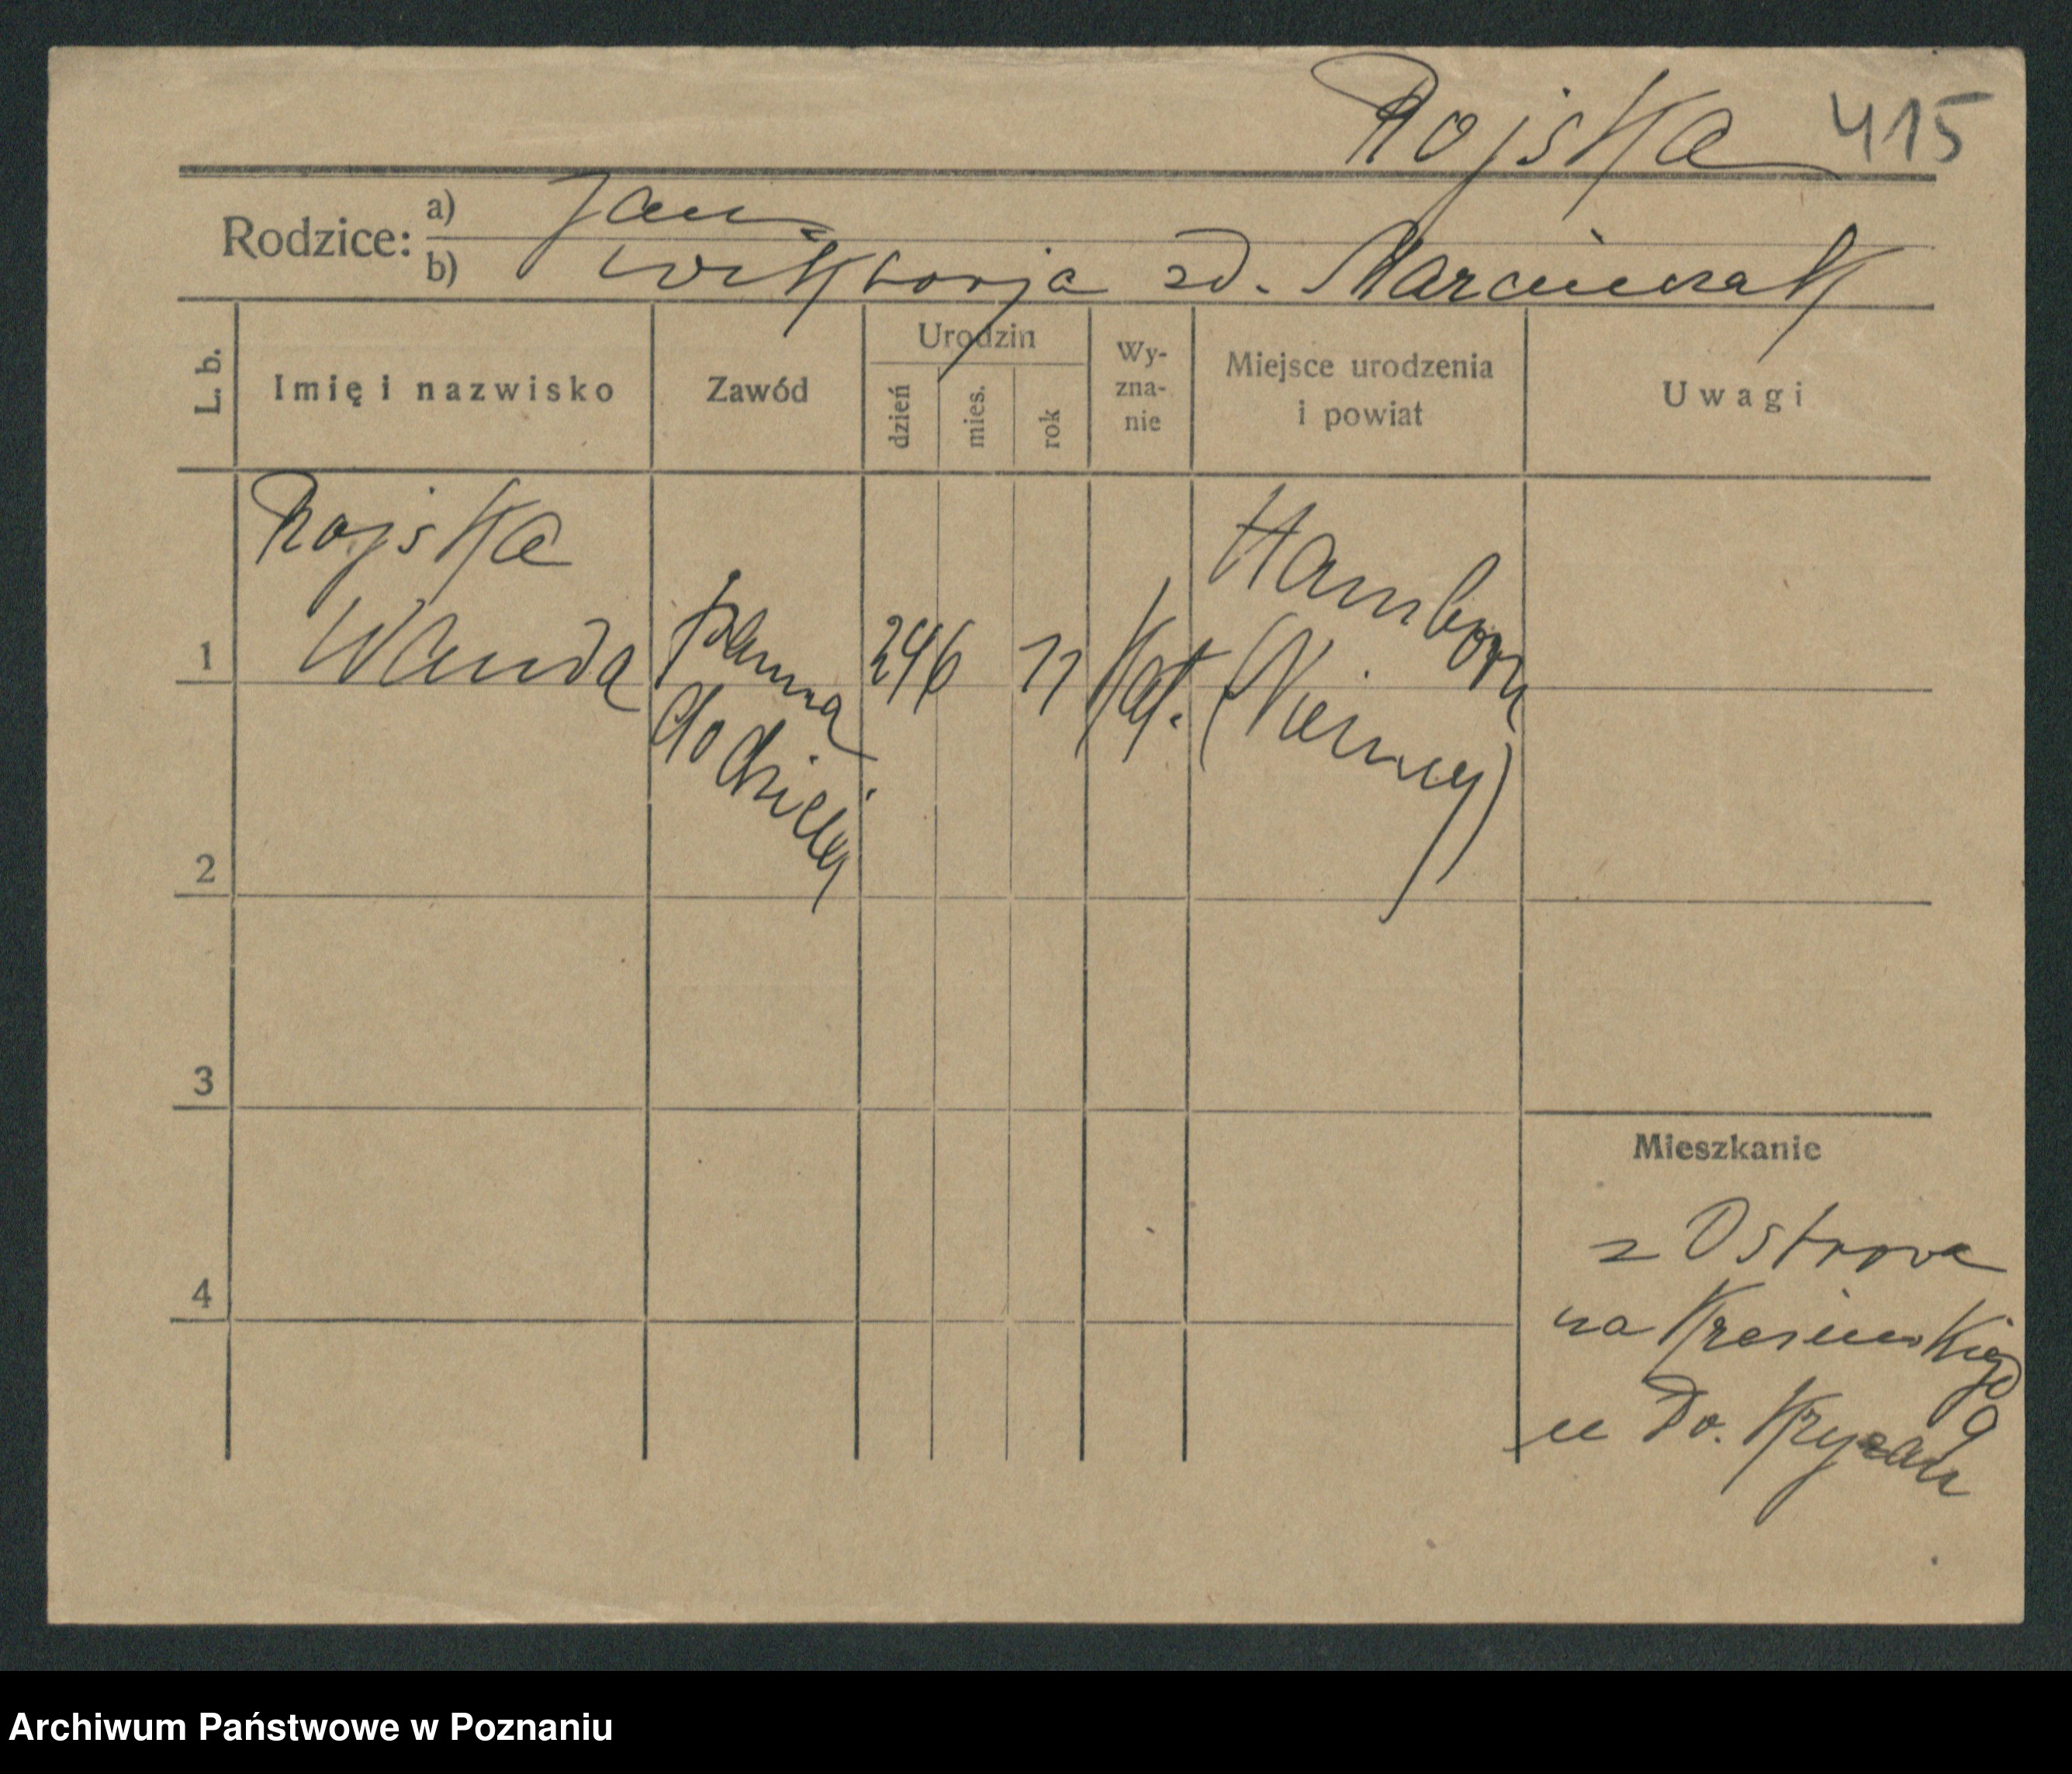 Rojska 415
Rodzice: a) Jan
b) Wiktorja zd. Marciniak
L. b.
Imię i nazwisko
Zawód
Urodzin
dzień
mies.
rok
Wy-
zna-
nie
Miejsce urodzenia
i powiat
Uwagi
Rojska
1 Wanda
panna
do dzieci
24 6 11 kat.
Hamborn
(Niemcy)
2
3
4
Mieszkanie
z Ostrowa
na Krasińskiego 9
u Dr.
Archiwum Państwowe w Poznaniu